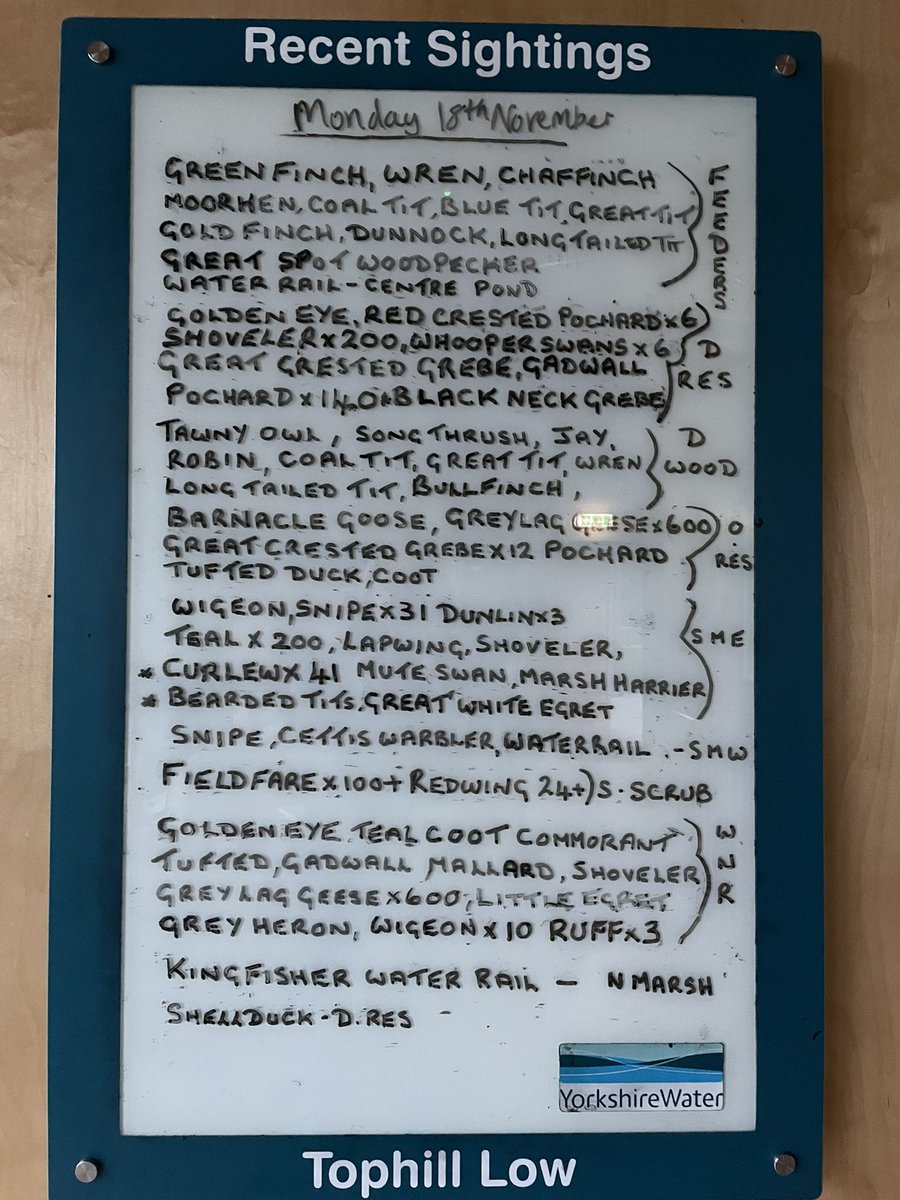 Recent Sightings
Monday 18th November
GREENFINCH, WREN, CHAFFINCH
MOORHEN, COAL TIT, BLUE TIT, GREAT TIT
GOLD FINCH, DUNNOCK, LONG TAILED TIT
GREAT SPOT WOODPECKER
WATER RAIL - CENTRE POND
FEEDERS
GOLDEN EYE, RED CRESTED POCHARD x 6
SHOVELER x 200, WHOOPER SWANS x 6
GREAT CRESTED GREBE, GADWALL
POCHARD x 140 * BLACK NECK GREBE
D
RES
TAWNY OWL, SONG THRUSH, JAY,
ROBIN, COAL TIT, GREAT TIT, WREN
LONG TAILED TIT, BULLFINCH,
D
WOOD
BARNACLE GOOSE, GREYLAG GEESE x 600
GREAT CRESTED GREBE x 12 POCHARD
TUFTED DUCK, COOT
O
RES
WIGEON, SNIPE x 31 DUNLIN x 3
TEAL x 200, LAPWING, SHOVELER,
* CURLEW x 41 MUTE SWAN, MARSH HARRIER
* BEARDED TITS, GREAT WHITE EGRET
SME
SNIPE, CETTIS WARBLER, WATERRAIL . - SMW
FIELDFARE x 100+ REDWING 24+) S. SCRUB
GOLDEN EYE TEAL COOT COMMORANT
TUFTED, GADWALL MALLARD, SHOVELER
GREY LAG GEESE x 600, LITTLE EGRET,
GREY HERON, WIGEON x 10 RUFF x 3
WNR
KINGFISHER WATER RAIL - N MARSH
SHELLDUCK - D. RES
YorkshireWater
Tophill Low